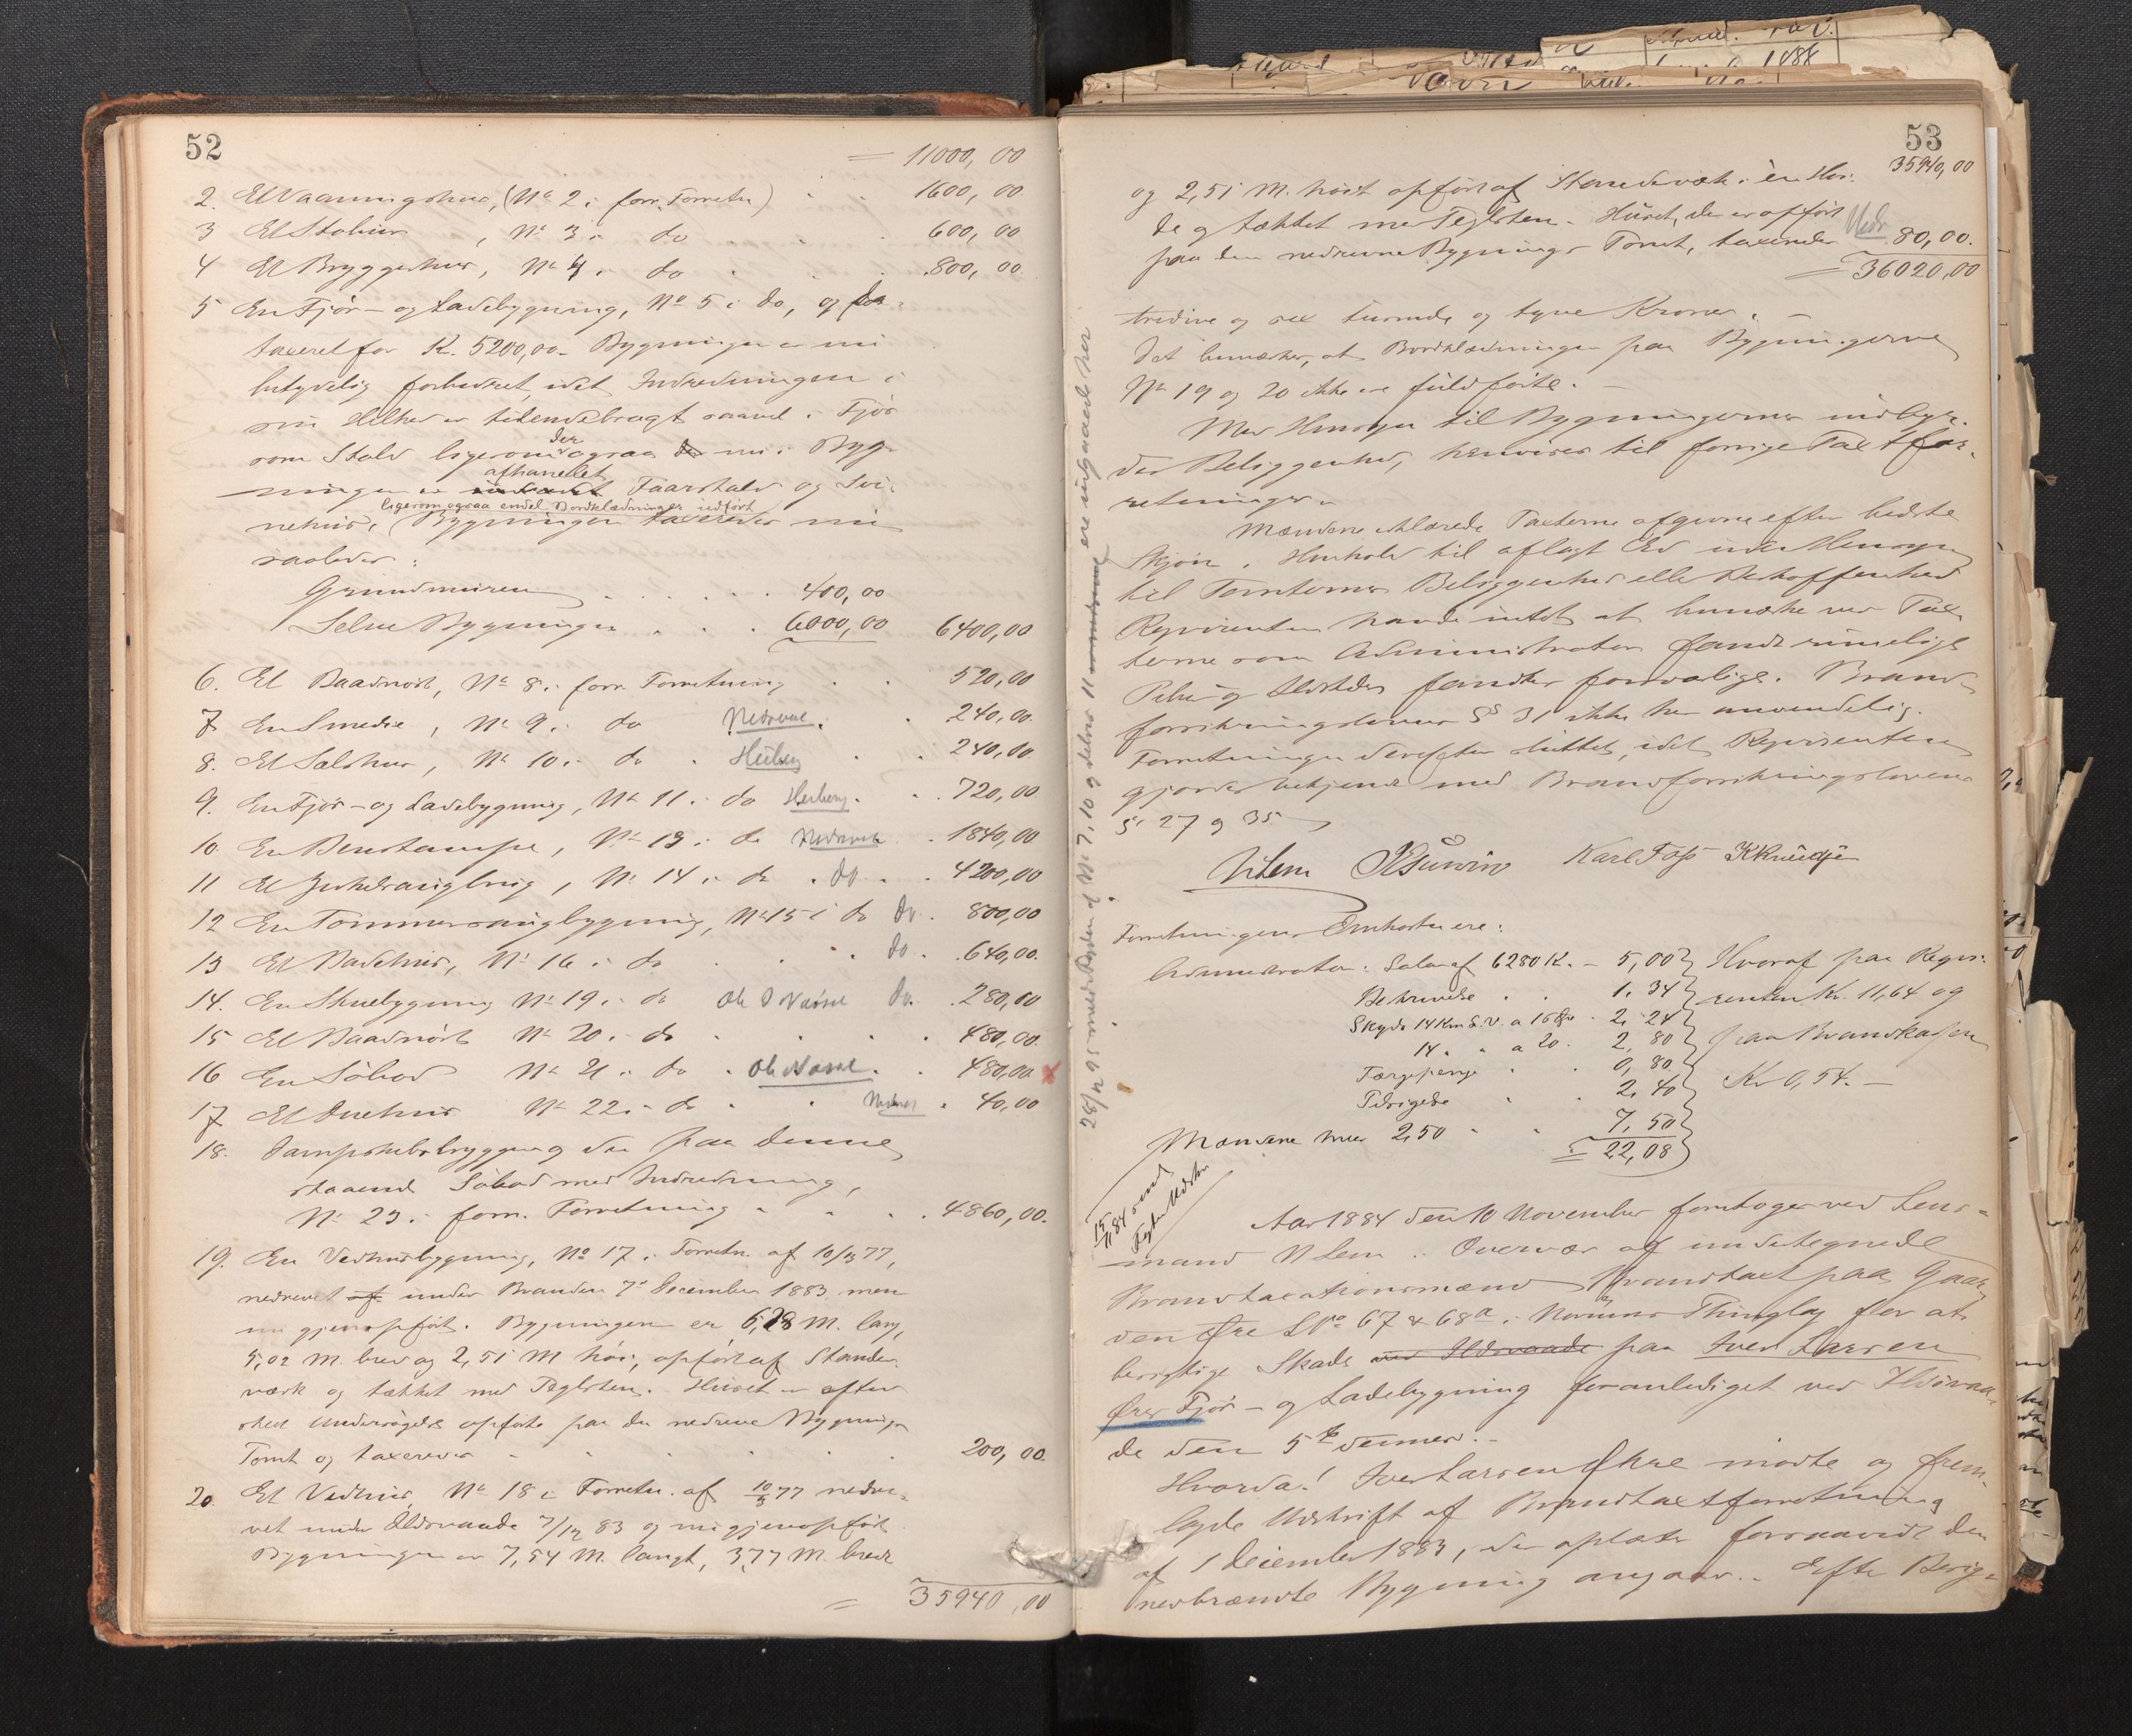 52
= 11000,00
2. Et Vaaningshus, (No 2 i forr. Forretn) . . 1600,00
3 Et Stabur , No 3 i do . . 600,00
4 Et Bryggerhus, No 4 i do . . . 800,00
5 En Fjøs- og Ladebygning, No 5 i do, og da
taxeret for K. 5200,00. Bygningen er nu
betydelig forbedret, idet Indredningen i
sin Helhed er tilendebragt saavel i Fjøs
som Stald ligesom der ogsaa nu i Byg-
ningen er afhandlet Faarstald og Svi-
ligesom ogsaa endel Bordklædninger udført
nehus. Bygningen taxeredes nu
saaledes:
Grundmuren . . . . . . 400,00
Selve Bygningen . . . 6000,00 6400,00
6. Et Baadnøst, No 8 i forr. Forretning . . 520,00
7 En Smedie , No 9 i do Nedrevet . . 240,00
8. Et Sælshus, No 10 i do . . . 240,00
9. En Fjøs- og Ladebygning, No 11 i do . . 720,00
10. En Benstampe, No 13 i do Nedrevet . 1840,00
11 Et Cirkelsaugbrug, No 14 i do . do . . 4200,00
12 En Tømmersaugbygning, No 15 i do do . 800,00
13 Et Badehus, No 16 i do . . . do . . 640,00
14. En Skuebygning No 19 i do do . . 280,00
15 Et Baadnøst No 20 i do . . . . 480,00
16 En Søbod No 21 i do . . . 480,00
17 Et Duehus No 22 i do . . . 40,00
18. Dampskibsbryggen og den paa denne
staaende Søbod med Indredning,
No 23 i forr. Forretning . . . . 4860,00.
19. En Vedhusbygning, No 17 i Forretn. af 10/3 77,
nedrevet under Branden 7de December 1883 men
nu gjenopført. Bygningen er 6,28 M. lang,
5,02 M. bred og 2,51 M høi, opført af Stander-
værk og tækket med Teglsten. Huset er efter
skeet Undersøgelse opført paa den nedrevne Bygnings
Tomt og taxeredes . . . . . . 200,00.
20. Et Vedhus, No 18 i Forretn. af 10/3 77 nedre-
vet under Ildsvaade 7/12 83 og nu gjenopført
Bygningen er 7,54 M. langt, 3,77 M. bredt
= 35940,00
53
35940,00
og 2,51 M. høit opført af Standerværk i en Høi-
de og tækket med Teglsten. Huset, der er opført
paa den nedrevne Bygnings Tomt, taxeredes Nedr. 80,00.
= 36020,00
tredive og sex tusinde og tyve Kroner. –
Det bemærkes, at Bordklædningen paa Bygningerne
No 19 og 20 ikke er fuldførte. –
Med Hensyn til Bygningernes indbyr-
des Beliggenhed, henvises til forrige Taxtfor-
retninger.
Mændene erklærede Taxterne afgivne efter bedste
Skjøn i Henhold til aflagt Ed uden Hensyn
til Tomternes Beliggenhed eller Beskaffenhed
Rqvirenten havde intet at bemærke ved Tax-
terne som Administrator fandt rimelige
Piber og Ildsteder fandtes forsvarlige. Brand-
forsikringslovens § 31 ikke her anvendelig.
Forretningen derefter sluttet, idet Rqvirenten
gjordes bekjendt med Brandforsikringslovens
§§ 27 og 35
NLem Karl Foss KKnudsen
Forretningens Omkostn. ere:
Administrator: Salar af 6280 K. – 5,00 Hvoraf paa Rqvi-
Beskrivelse . . 1,34 renten Kr. 11,64 og
Skyds 14 Km L.V. a 16 Øre . 2,24 paa Brandkassen
14 . " a 20 . 2,80 Kr 0,54. –
Færgepenge . . 0,80
Tilsigelse . . 2,40
Mændene hver 2,50 . . 7,50
= 22,08
15/11 84 send
Aar 1884 den 10 November foretoges ved Lens-
mand N Lem i Overvær af undertegnede
Brandtaxationsmænd Brandtaxt paa Gaar-
den Øre LNo 67 & 68a i Thinglag for at
besigtige Skade ved Ildsvaade paa Iver Larsen
Øres Fjøs- og Ladebygning foranlediget ved Ildsvaa-
de den 5te dennes. –
Hvorda! Iver Larsen Øre mødte og frem-
lagde Udskrift af Brandtaxtforretning
af 1 December 1883, der oplæstes forsaavidt den
nedbrændte Bygning angaar. Efter Besig-
28/12 95 er udgaaede her